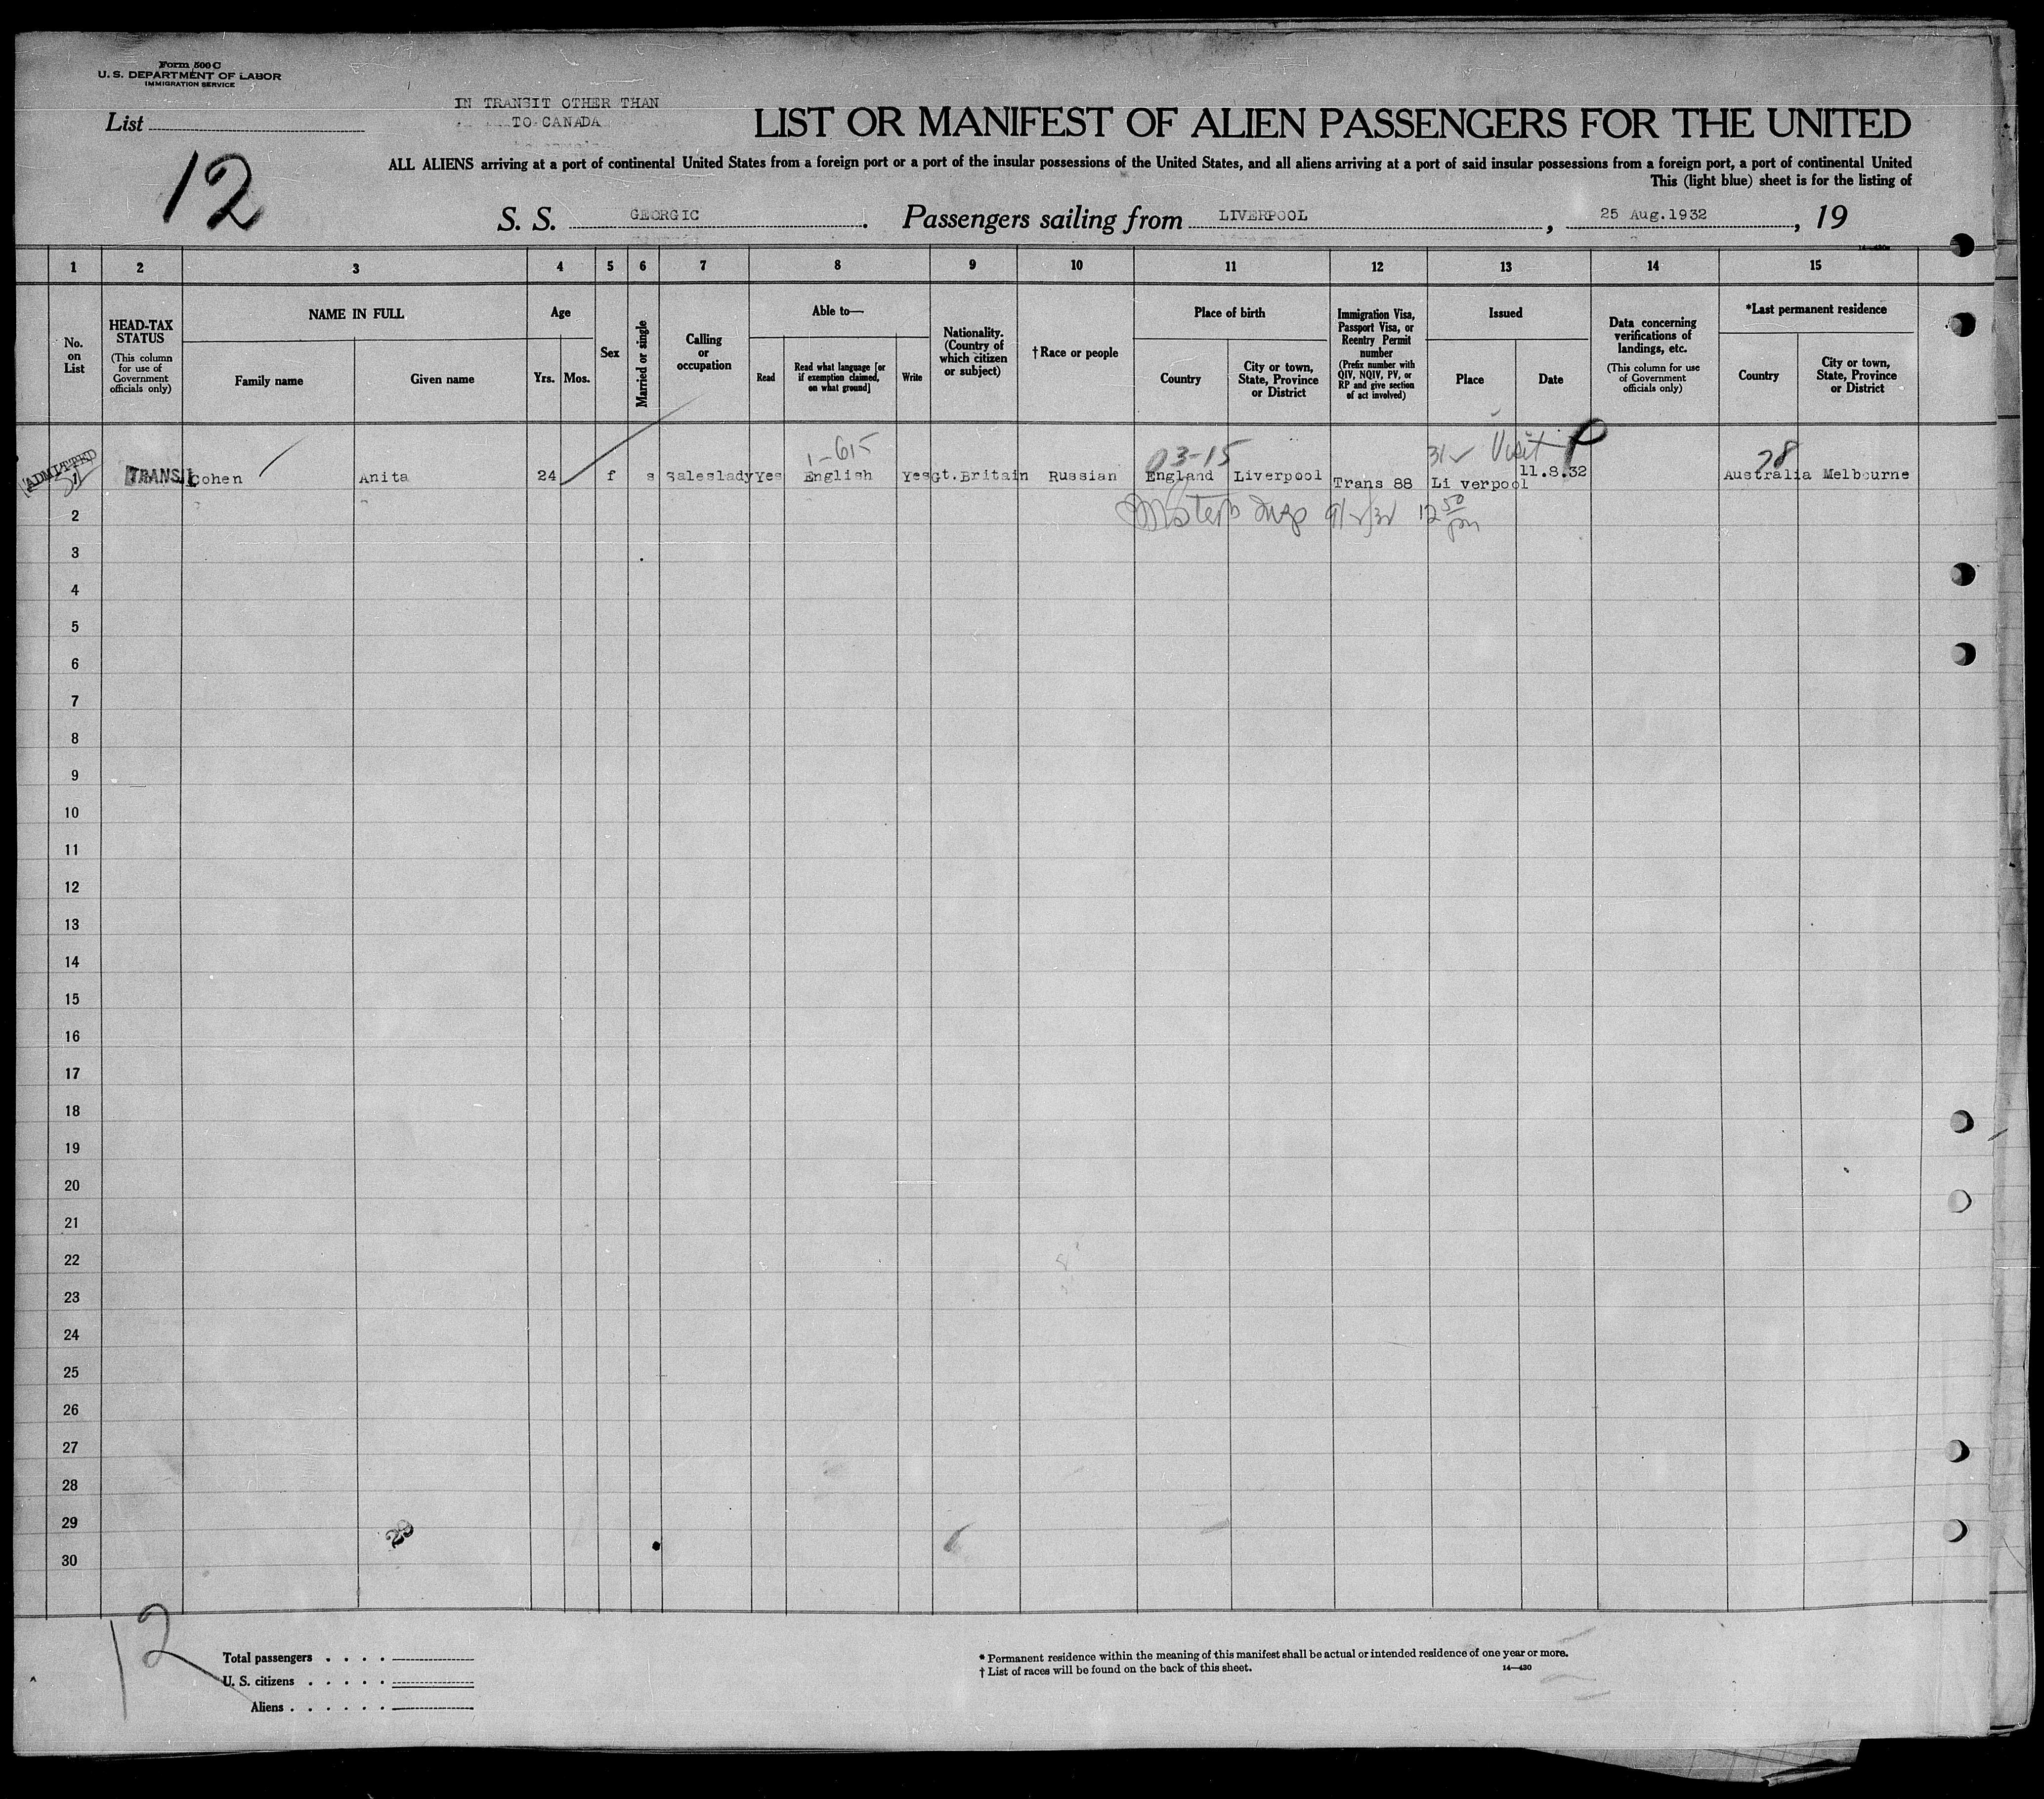 Form 500 C
U. S. DEPARTMENT OF LABOR
IMMIGRATION SERVICE
List
12
IN TRANSIT OTHER THAN
TO CANADA
LIST OR MANIFEST OF ALIEN PASSENGERS FOR THE UNITED
ALL ALIENS arriving at a port of continental United States from a foreign port or a port of the insular possessions of the United States, and all aliens arriving at a port of said insular possessions from a foreign port, a port of continental United
This (light blue) sheet is for the listing of
S. S. GEORGIC. Passengers sailing from LIVERPOOL, 25 Aug.1932, 19
14—430
1 2 3 4 5 6 7 8 9 10 11 12 13 14 15
No. on List
HEAD-TAX STATUS
(This column for use of Government officials only)
NAME IN FULL
Family name
Given name
Age
Yrs. Mos.
Sex
Married or single
Calling or occupation
Able to—
Read
Read what language [or if exemption claimed, on what ground]
Write
Nationality. (Country of which citizen or subject)
†Race or people
Place of birth
Country
City or town, State, Province or District
Immigration Visa, Passport Visa, or Reentry Permit number
(Prefix number with QIV, NQIV, PV, or RP and give section of act involved)
Issued
Place
Date
Data concerning verifications of landings, etc.
(This column for use of Government officials only)
*Last permanent residence
Country
City or town, State, Province or District
1-615 03-15 Visit 28
ADMITTED
1 TRANSIT Cohen Anita 24 f s Saleslady Yes English Yes Gt.Britain Russian England Liverpool Trans 88 Li verpool 11.8.32 Australia Melbourne
2
12 50 pm
3
4
5
6
7
8
9
10
11
12
13
14
15
16
17
18
19
20
21
22
23
24
25
26
27
28
29
30
12
Total passengers . . . .
U. S. citizens . . . . .
Aliens . . . . . .
* Permanent residence within the meaning of this manifest shall be actual or intended residence of one year or more.
† List of races will be found on the back of this sheet.
14—430